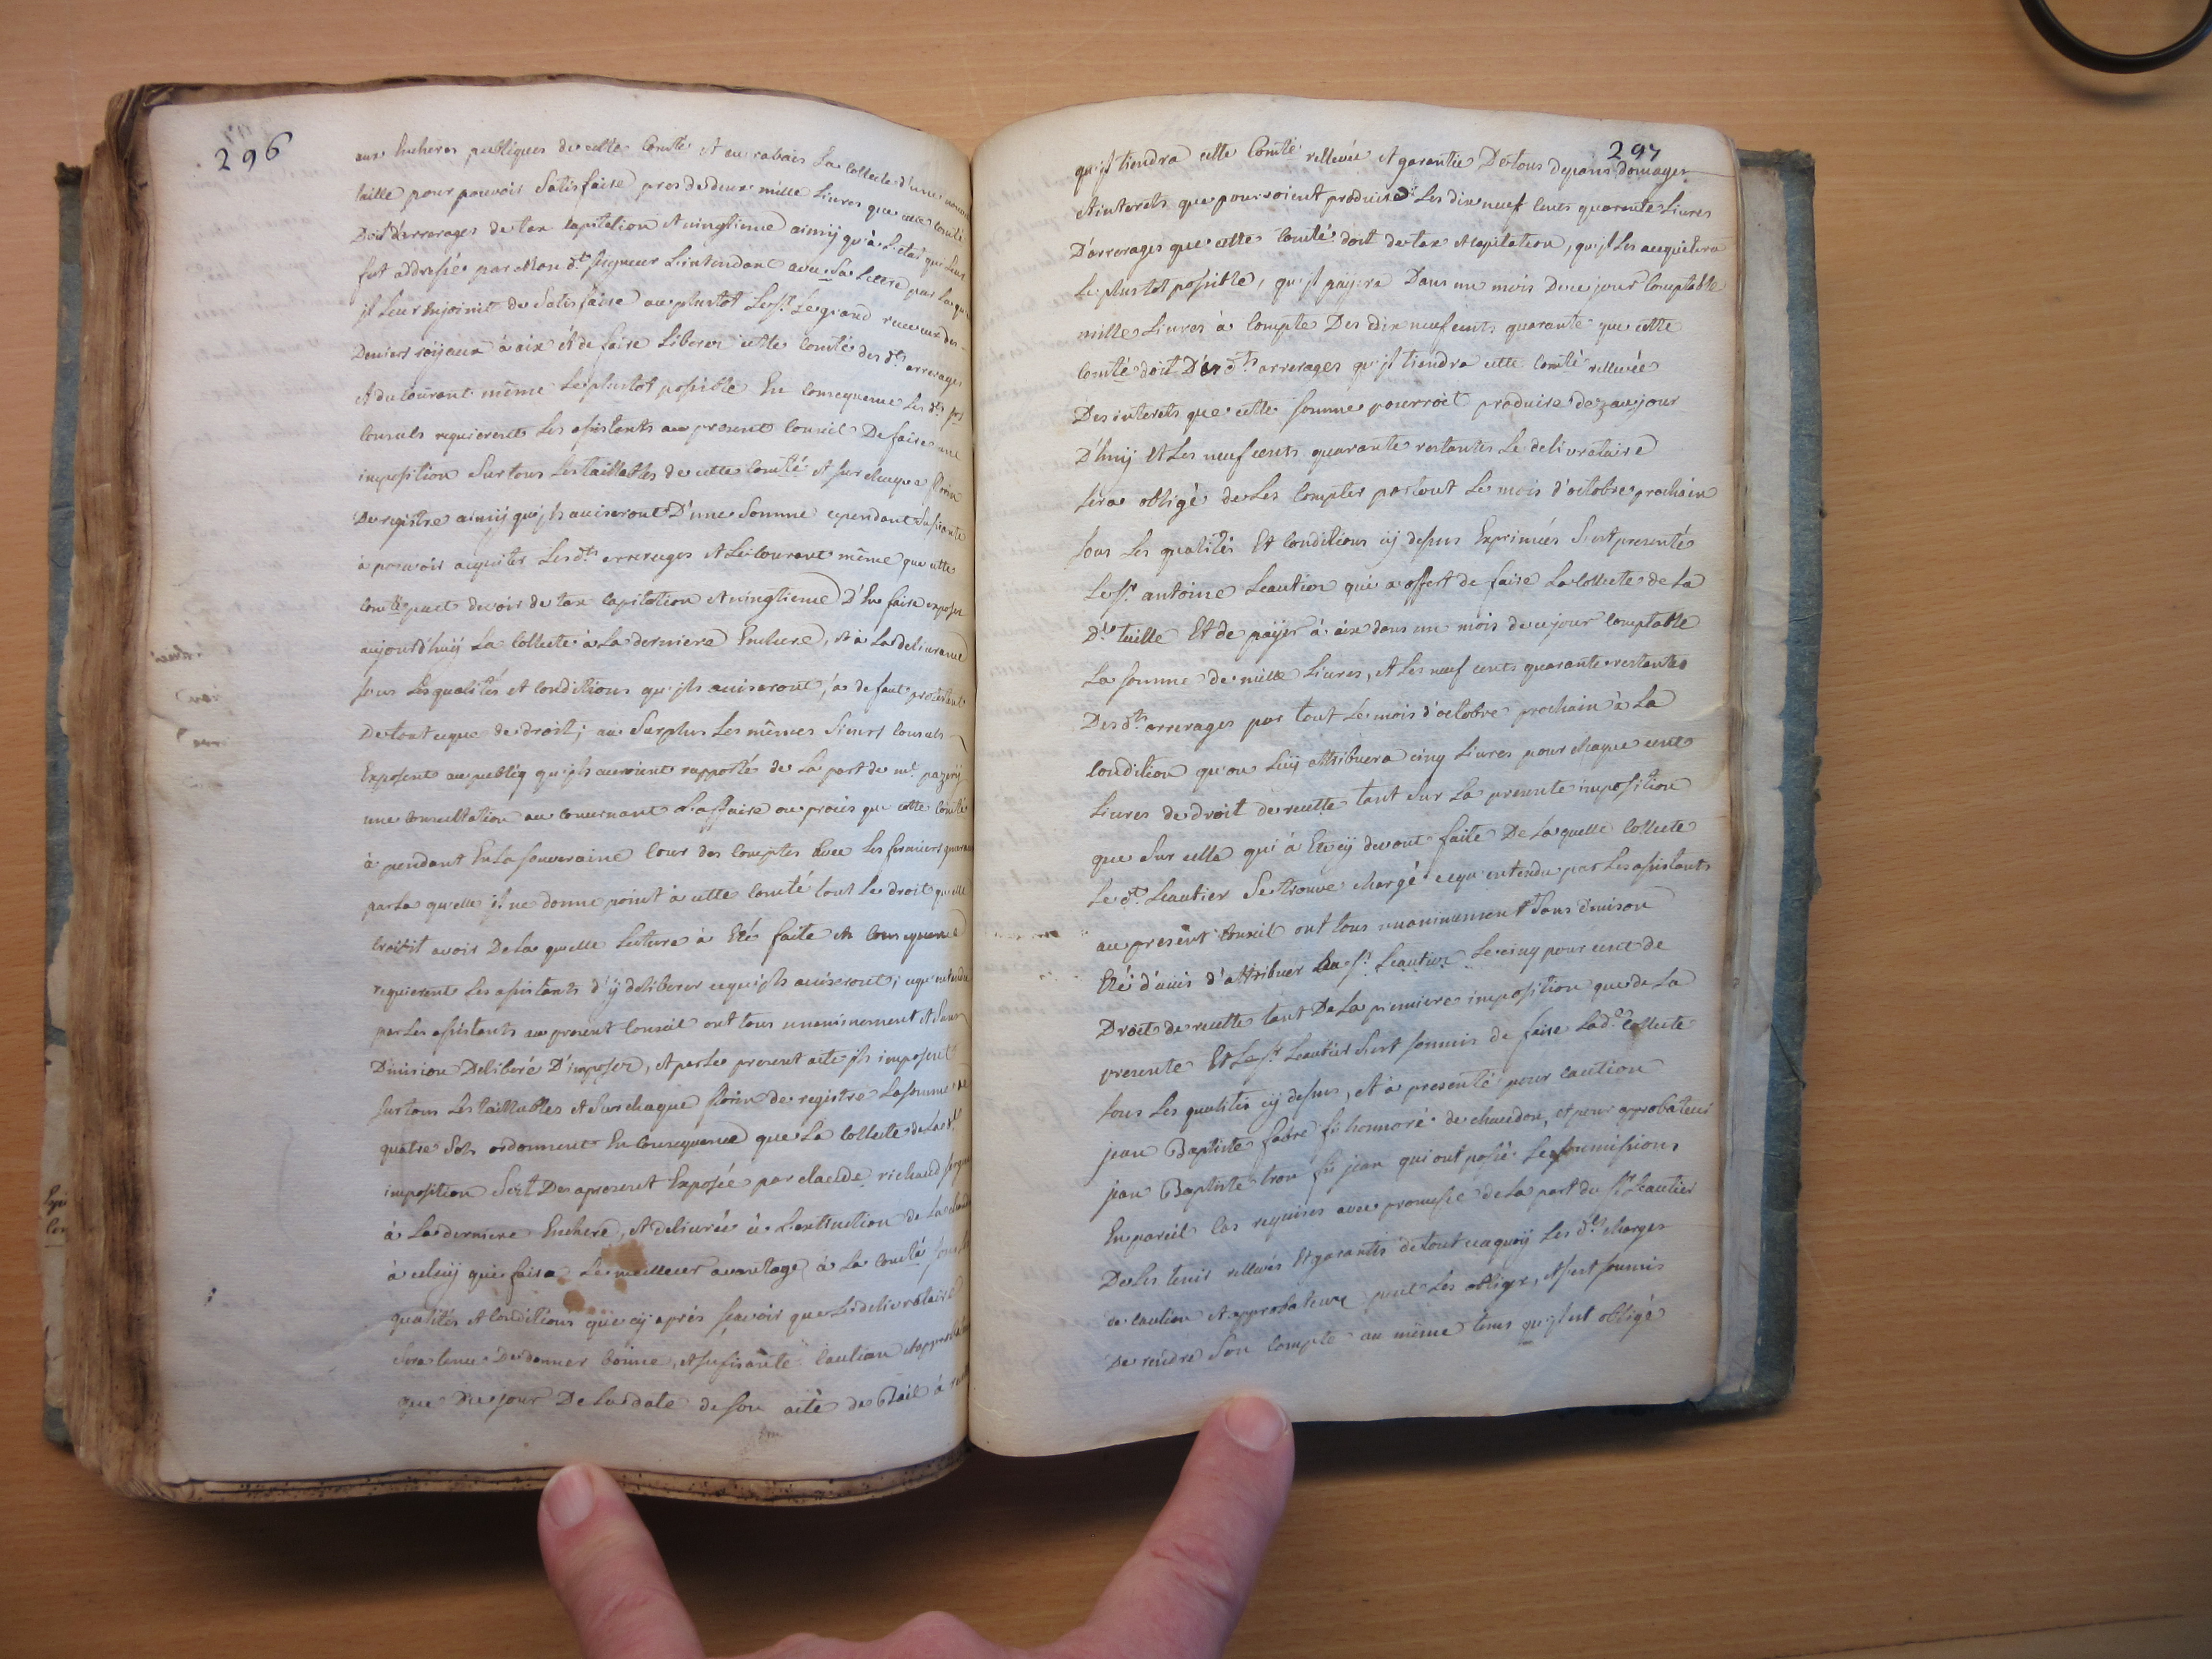 296
aux Encheres publiques de cette Com.té Et au rabais La collecte d'une
taille pour pouvoir Satisfaire pres de deux mille Livres que cette Com.té
Doit d'arrerages de tax capitation Et vingtieme ainsÿ qu'à L'etat qui Leur
fut addressée par Mon d.t seigneur L'intendant avec Sa Lettre par Laque
jl Leur Enjoinit de Satisfaire au plustot Le s.r Le grand receveur des
Deniers roÿaux à aix Et de faire Liberer cette Com.té des d.ts arrerages
Et du Courant même Le plustot possible En consequence Les d.ts s.rs
Consuls requierent Les assistants au present Conseil De faire une
imposition Sur tous Les taillables de cette Com.té Et sur chaque florin
De registre ainsÿ qu'jls aviseront D'une Somme cependant Sufisante
à pouvoir acquiter Les d.ts arrerages Et Le Courant même que cette
Com.té peut devoir de tax capitation Et vingtieme D'En faire exposer
aujourd'huÿ La Collecte à La derniere Enchere, Et à La delivrance
sous Les qualités et Conditions qu'jls aviseront, a defaut protestent
De tout ceque de droit; au Surplus Les mêmes Sieurs Consuls
Exposent au publiq qu'jls auroient rapporté de La part de m.e pazerÿ
une Consultation au Concernant L'affaire ou procès que cette Com.té
à pendant En La Souveraine Cour des Comptes Avec Les fermiers
par La quelle jl ne donne point à cette Com.té tout Le droit qu'elle
Croioit avoir De La quelle Lecture à Eté faite En Consequence
requierent Les assistants d'ÿ deliberer cequ'jls aviseront; cequ'entendu
par Les assistants au present Conseil ont tous unanimement Et Sans
Division Deliberé D'imposer, Et par Le present acte jls imposent
Sur tous Les taillables Et Sur chaque florin de registre La somme de
quatre Sols ordonnent En Consequence que La Collecte de La d.te
imposition Soit Des apresent Exposée par claude richaud
à La derniere Enchere, Et delivrée à L'extinction de La chandele
à celuÿ qui faira Le meilleur avantage à La Com.té sous Les
qualités Et Conditions que cÿ après sçavoir que Le delivrataire
Sera tenu De donner bonne, Et sufisante Caution Et approbateur
que Du jour De La date de son acte de Bail à
297
qu'jl tiendra cette Com.té rellevée Et garantie De tous depans domages
Et interets que pourroient produire Les dix neuf Cents quarante Livres
D'arrerages que cette Com.té doit de tax Et Capitation, qu'jl Les acquitera
Le plustot possible, qu'jl paÿera Dans un mois De ce jour Comptable
mille Livres à Compte Des dix neuf cents quarante que cette
Com.té doit D'es d.ts arrerages qu'jl tiendra cette Com.té rellevée
Des interets que cette Somme pourroit produire dez aujour
D'huÿ Et Les neuf cents quarante restantes Le delivrataire
sera obligé de Les Compter par tout Le mois d'octobre prochain
sous Les qualités Et Conditions cÿ dessus Exprimées S'est presenté
Le s.r antoine Leautier qui a offert de faire La Collecte de La
D.te taille Et de paÿer à aix dans un mois de ce jour Comptable
La somme de mille Livres, Et Les neuf cents quarante restantes
Des d.ts arrerages par tout Le mois d'octobre prochain à La
Condition qu'on Luÿ attribuera cinq Livres pour chaque cent
Livres de droit de recette tant Sur La presente imposition
que Sur celle qui à Eté cÿ devant faite De La quelle Collecte
Le d.t Leautier Se trouve chargé cequ'entendu par Les assistants
au present Conseil ont tous unanimement Sans division
Eté d'avis d'attribuer au s.r Leautier Le cinq pour cent de
Droit de recette tant De La premiere imposition que de La
presente Et Le s.r Leautier S'est soumis de faire La d.te Collecte
sous Les qualités cÿ dessus, Et à presenté pour Caution
jean Baptiste fabre fils honnoré de chaudon, Et pour approbateur
jean Baptiste tron fils jean qui ont passé Les soumissions
En pareil Cas requises avec promesse de La part du s.r Leautier
De Les tenir rellevés Et garantis de tout ceaquoÿ Les d.tes charges
de Caution Et approbateur peut Les obliger, Et s'est soumis
De rendre Son Compte au même tems qu'jl est obligé